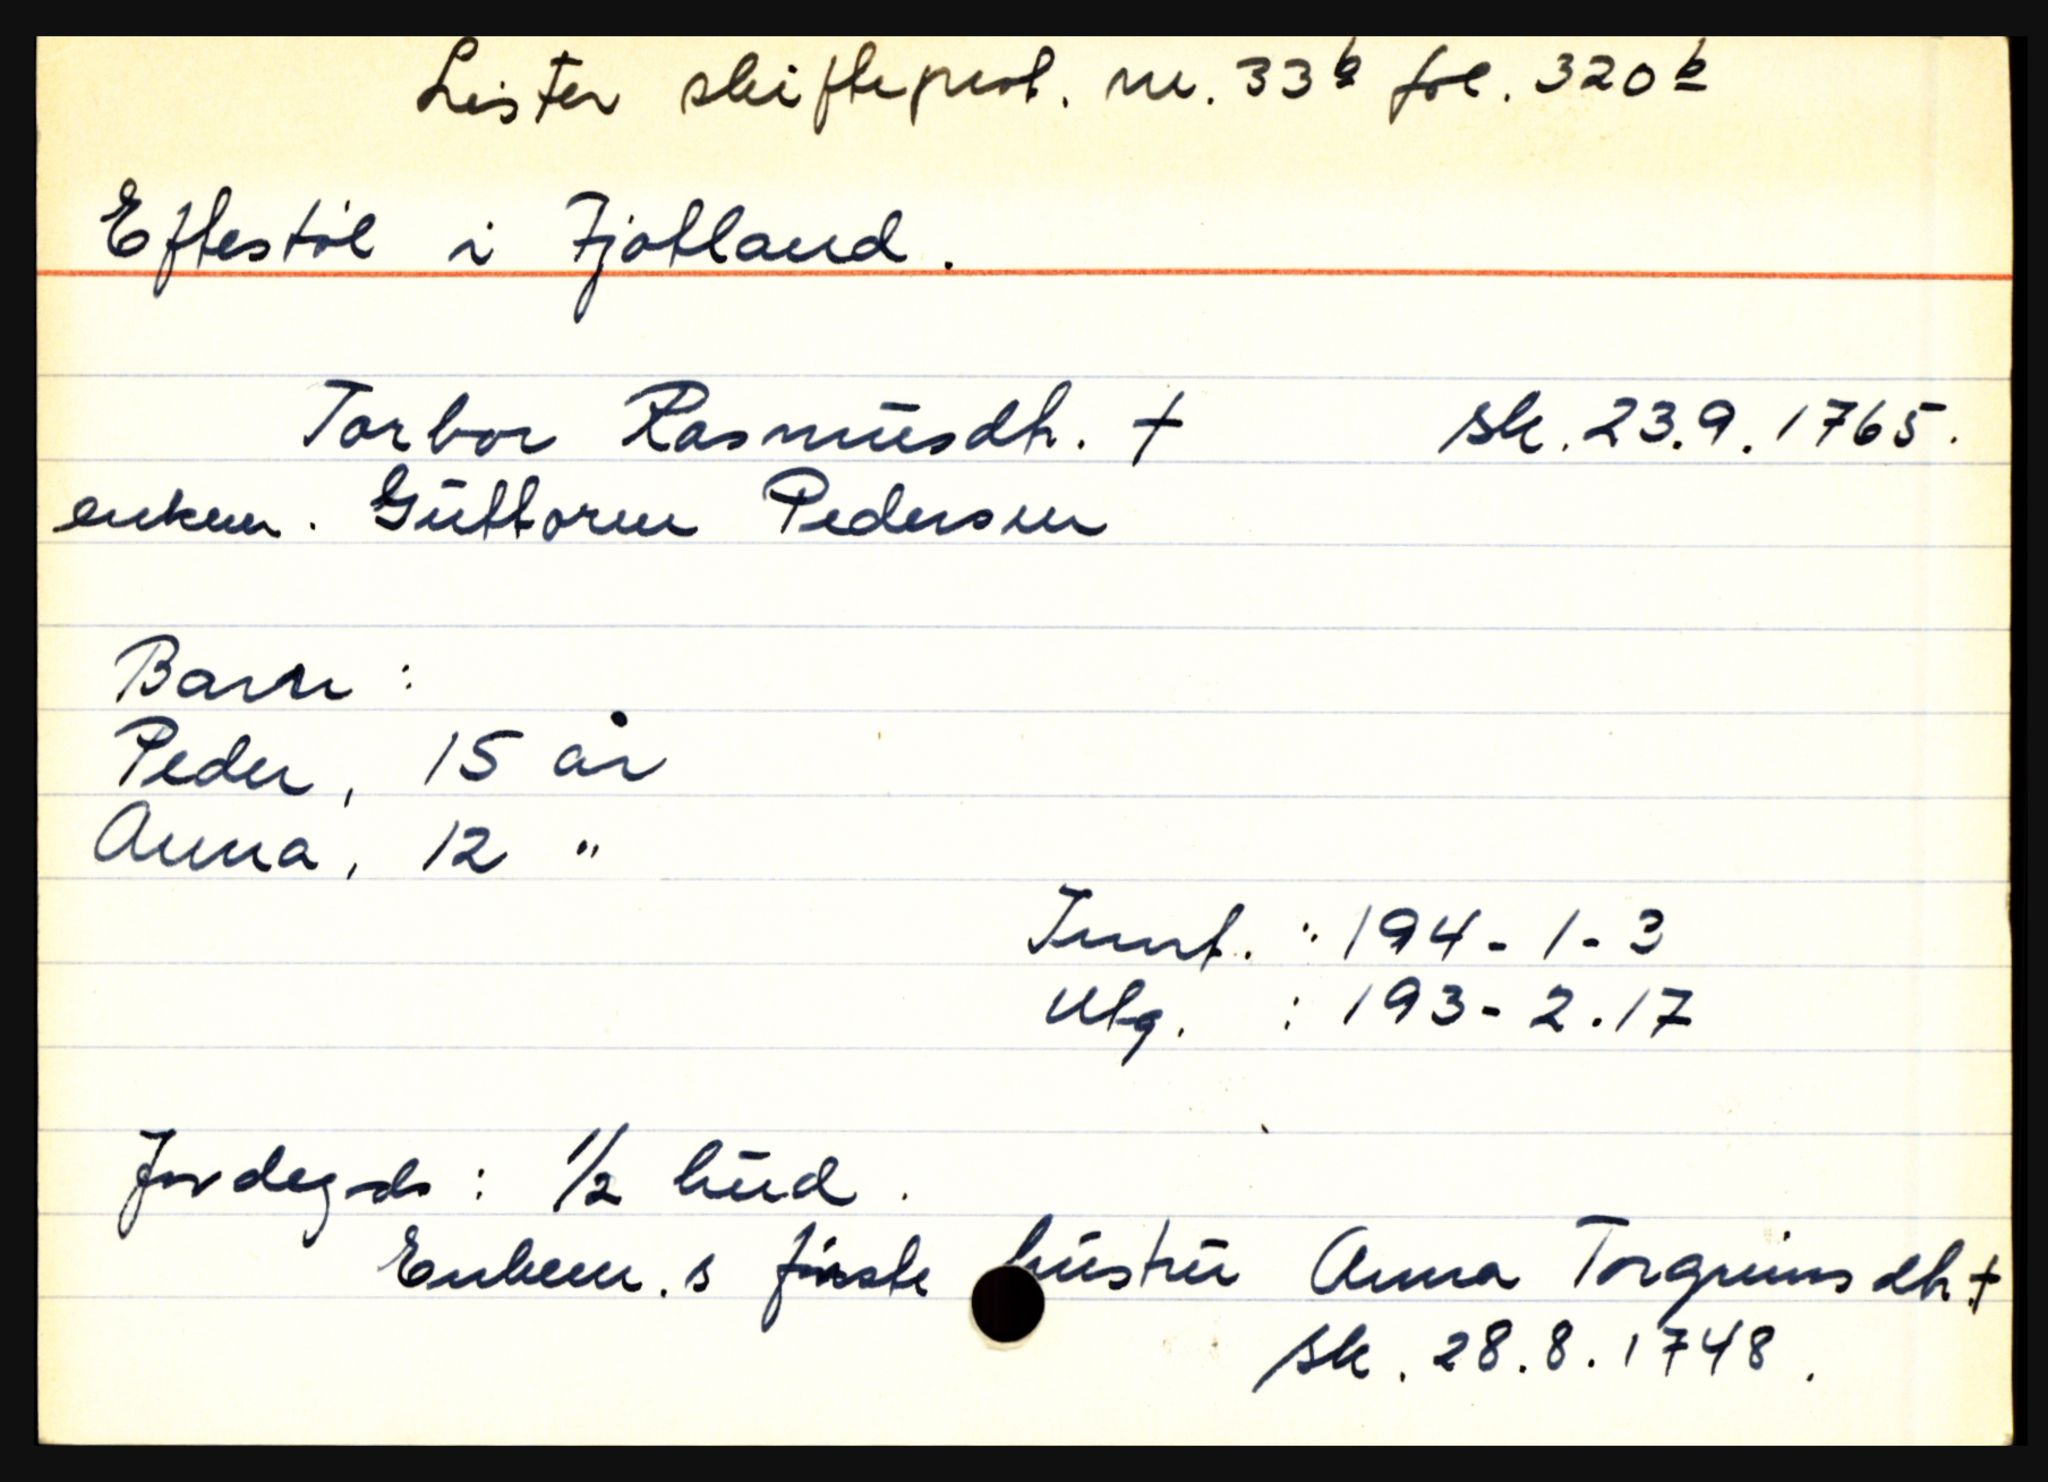 Lister skifteprot. nr. 33b fol. 320b
Eftestøl i Fjotland.
Torbor Rasmusdtr. † sk. 23.9.1765.
enkem. Guttorm Pedersen
Barn :
Peder, 15 år
Anna, 12 "
Innt. : 194 - 1 - 3
Utg. : 193 - 2 . 17
Jordegods : 1/2 hud.
Enkem.s første hustru Anna Torgrimsdtr †
sk. 28.8.1748.